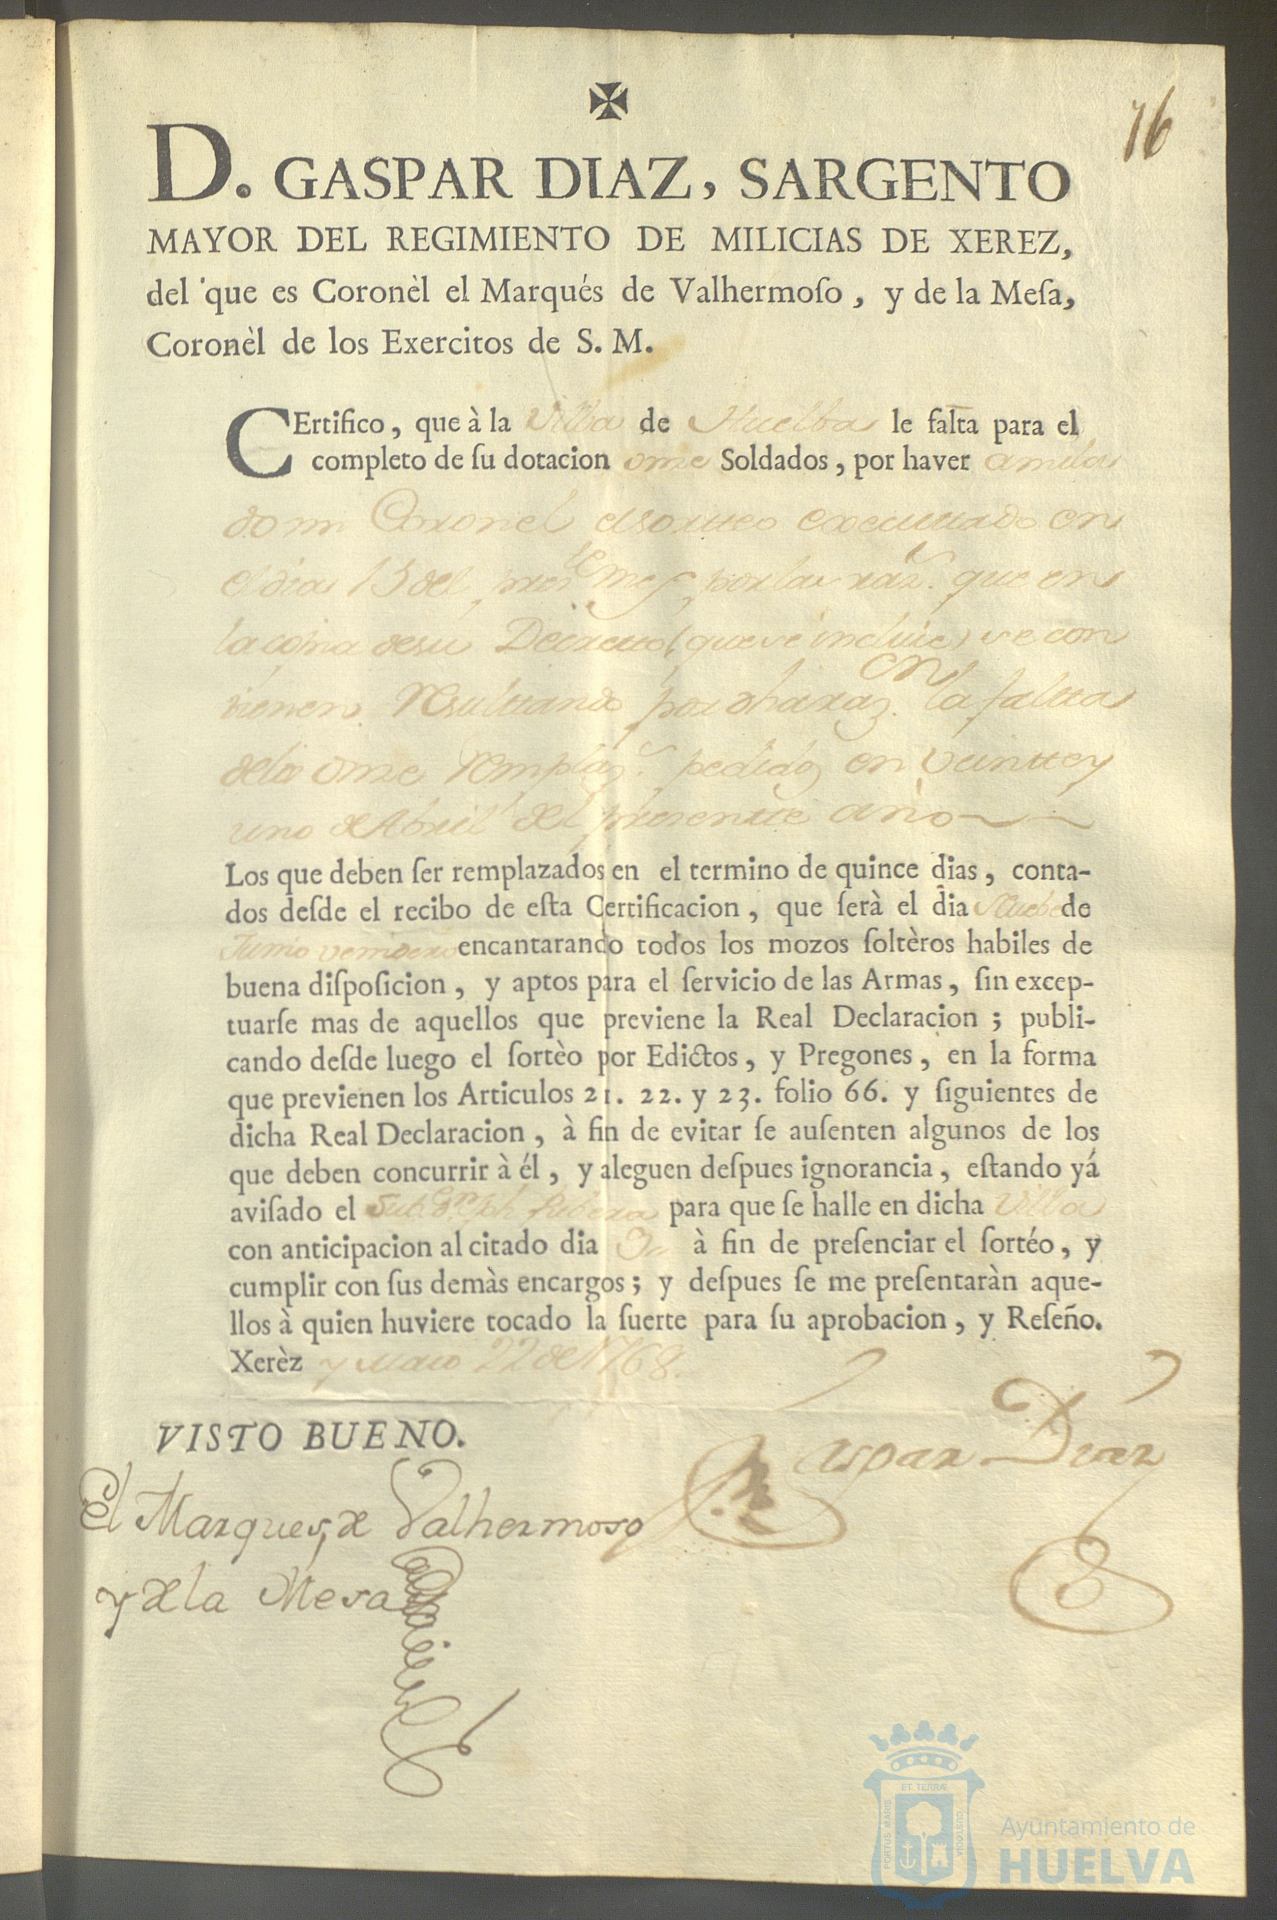 16
D. GASPAR DIAZ, SARGENTO
MAYOR DEL REGIMIENTO DE MILICIAS DE XEREZ,
del que es Coronèl el Marqués de Valhermoſo, y de la Meſa,
Coronèl de los Exercitos de S. M.
CErtifico, que à la Villa de Huelba le falta para el
completo de ſu dotacion onze Soldados, por haver anula
do mi Coronel el sorteo executtado en
el dia 15 del presᵗᵉ mes, por las raz.ˢ que en
la copia de su Decretto (que se incluie) se con
tienen, resulttando por dha raz.ⁿ la faltta
de los onze remplaz.ˢ pedidos en veintte y
uno de Abril del presentte año
Los que deben ſer remplazados en el termino de quince dias, conta-
dos deſde el recibo de eſta Certificacion, que ſerà el dia Nuebe de
Junio venidero encantarando todos los mozos ſoltèros habiles de
buena diſpoſicion, y aptos para el ſervicio de las Armas, ſin excep-
tuarſe mas de aquellos que previene la Real Declaracion; publi-
cando deſde luego el ſortèo por Edictos, y Pregones, en la forma
que previenen los Articulos 21. 22. y 23. folio 66. y ſiguientes de
dicha Real Declaracion, à fin de evitar ſe auſenten algunos de los
que deben concurrir à él, y aleguen deſpues ignorancia, eſtando yá
aviſado el Subᵗᵉ Dⁿ Jph Ribera para que ſe halle en dicha Villa
con anticipacion al citado dia 9 à fin de preſenciar el ſortéo, y
cumplir con ſus demàs encargos; y deſpues ſe me preſentaràn aque-
llos à quien huviere tocado la ſuerte para ſu aprobacion, y Reſeño.
Xerèz y Maio 22 de 1768.
VISTO BUENO.
Gaspar Diaz
El Marques, de Valhermoso
y de la Mesa
ET TERRÆ
PORTUS MARIS
CUSTODIA
Ayuntamiento de
HUELVA